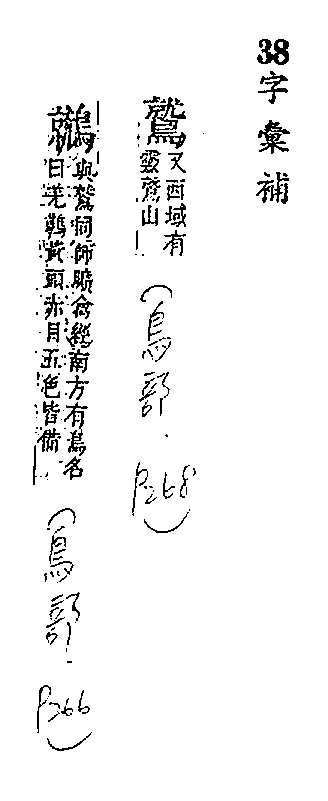 38
字彙補
鷲又西域有
靈鷲山
(鳥部.
P268)
鷲與鷲同師曠禽經南方有鳥名
曰羌鷲黃頭赤目五色皆備
(鳥部.
P266)